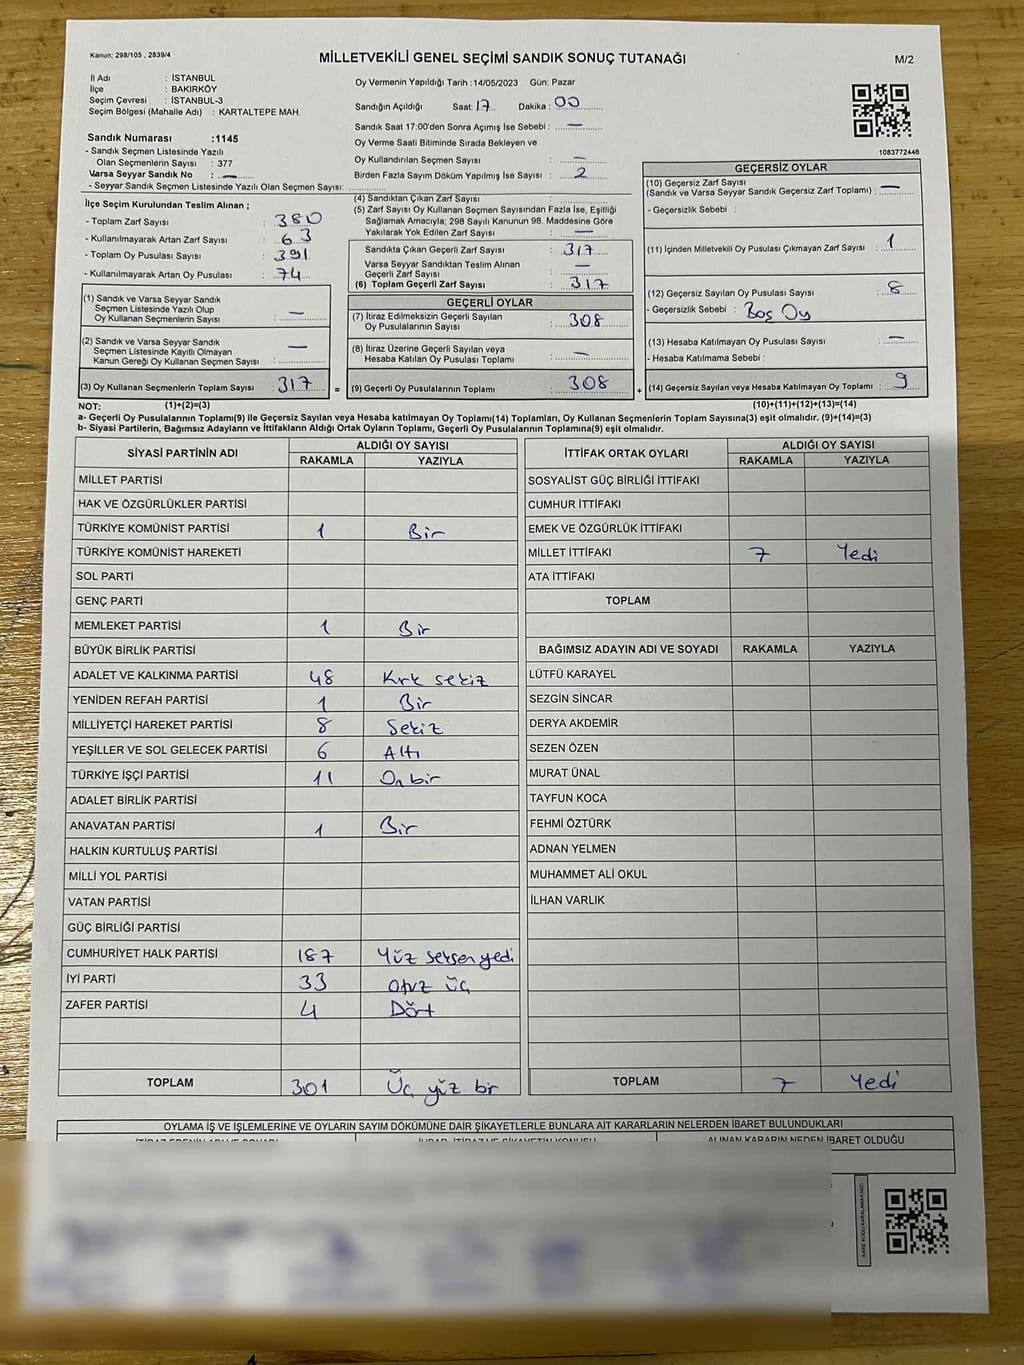 Kanun: 298/105 , 2839/4
MİLLETVEKİLİ GENEL SEÇİMİ SANDIK SONUÇ TUTANAĞI
M/2
İl Adı : İSTANBUL
İlçe : BAKIRKÖY
Seçim Çevresi : İSTANBUL-3
Seçim Bölgesi (Mahalle Adı) : KARTALTEPE MAH.
Sandık Numarası :1145
- Sandık Seçmen Listesinde Yazılı
Olan Seçmenlerin Sayısı : 377
Varsa Seyyar Sandık No : —
- Seyyar Sandık Seçmen Listesinde Yazılı Olan Seçmen Sayısı:
Oy Vermenin Yapıldığı Tarih :14/05/2023 Gün: Pazar
Sandığın Açıldığı Saat: 17 Dakika : 00
Sandık Saat 17:00'den Sonra Açımış İse Sebebi : —
Oy Verme Saati Bitiminde Sırada Bekleyen ve
Oy Kullandırılan Seçmen Sayısı : —
Birden Fazla Sayım Döküm Yapılmış İse Sayısı : 2
1083772446
İlçe Seçim Kurulundan Teslim Alınan ;
- Toplam Zarf Sayısı : 380
- Kullanılmayarak Artan Zarf Sayısı : 63
- Toplam Oy Pusulası Sayısı : 391
- Kullanılmayarak Artan Oy Pusulası : 74
(1) Sandık ve Varsa Seyyar Sandık
Seçmen Listesinde Yazılı Olup
Oy Kullanan Seçmenlerin Sayısı : —
(2) Sandık ve Varsa Seyyar Sandık
Seçmen Listesinde Kayıtlı Olmayan
Kanun Gereği Oy Kullanan Seçmen Sayısı : —
(3) Oy Kullanan Seçmenlerin Toplam Sayısı : 317
(4) Sandıktan Çıkan Zarf Sayısı :
(5) Zarf Sayısı Oy Kullanan Seçmen Sayısından Fazla İse, Eşitliği
Sağlamak Amacıyla; 298 Sayılı Kanunun 98. Maddesine Göre
Yakılarak Yok Edilen Zarf Sayısı : —
Sandıkta Çıkan Geçerli Zarf Sayısı : 317
Varsa Seyyar Sandıktan Teslim Alınan
Geçerli Zarf Sayısı : —
(6) Toplam Geçerli Zarf Sayısı : 317
GEÇERLİ OYLAR
(7) İtiraz Edilmeksizin Geçerli Sayılan
Oy Pusulalarının Sayısı : 308
(8) İtiraz Üzerine Geçerli Sayılan veya
Hesaba Katılan Oy Pusulası Toplamı : —
= (9) Geçerli Oy Pusulalarının Toplamı : 308 +
GEÇERSİZ OYLAR
(10) Geçersiz Zarf Sayısı
(Sandık ve Varsa Seyyar Sandık Geçersiz Zarf Toplamı) : —
- Geçersizlik Sebebi :
(11) İçinden Milletvekili Oy Pusulası Çıkmayan Zarf Sayısı : 1
(12) Geçersiz Sayılan Oy Pusulası Sayısı : 8
- Geçersizlik Sebebi : Boş Oy
(13) Hesaba Katılmayan Oy Pusulası Sayısı : —
- Hesaba Katılmama Sebebi :
(14) Geçersiz Sayılan veya Hesaba Katılmayan Oy Toplamı : 9
NOT: (1)+(2)=(3)
(10)+(11)+(12)+(13)=(14)
a- Geçerli Oy Pusulalarının Toplamı(9) ile Geçersiz Sayılan veya Hesaba katılmayan Oy Toplamı(14) Toplamları, Oy Kullanan Seçmenlerin Toplam Sayısına(3) eşit olmalıdır. (9)+(14)=(3)
b- Siyasi Partilerin, Bağımsız Adayların ve İttifakların Aldığı Ortak Oyların Toplamı, Geçerli Oy Pusulalarının Toplamına(9) eşit olmalıdır.
SİYASİ PARTİNİN ADI ALDIĞI OY SAYISI
RAKAMLA YAZIYLA
MİLLET PARTİSİ
HAK VE ÖZGÜRLÜKLER PARTİSİ
TÜRKİYE KOMÜNİST PARTİSİ 1 Bir
TÜRKİYE KOMÜNİST HAREKETİ
SOL PARTİ
GENÇ PARTİ
MEMLEKET PARTİSİ 1 Bir
BÜYÜK BİRLİK PARTİSİ
ADALET VE KALKINMA PARTİSİ 48 Kırk sekiz
YENİDEN REFAH PARTİSİ 1 Bir
MİLLİYETÇİ HAREKET PARTİSİ 8 Sekiz
YEŞİLLER VE SOL GELECEK PARTİSİ 6 Altı
TÜRKİYE İŞÇİ PARTİSİ 11 On bir
ADALET BİRLİK PARTİSİ
ANAVATAN PARTİSİ 1 Bir
HALKIN KURTULUŞ PARTİSİ
MİLLİ YOL PARTİSİ
VATAN PARTİSİ
GÜÇ BİRLİĞİ PARTİSİ
CUMHURİYET HALK PARTİSİ 187 Yüz seksen yedi
İYİ PARTİ 33 Otuz üç
ZAFER PARTİSİ 4 Dört
TOPLAM 301 Üç yüz bir
İTTİFAK ORTAK OYLARI ALDIĞI OY SAYISI
RAKAMLA YAZIYLA
SOSYALİST GÜÇ BİRLİĞİ İTTİFAKI
CUMHUR İTTİFAKI
EMEK VE ÖZGÜRLÜK İTTİFAKI
MİLLET İTTİFAKI 7 Yedi
ATA İTTİFAKI
TOPLAM
BAĞIMSIZ ADAYIN ADI VE SOYADI RAKAMLA YAZIYLA
LÜTFÜ KARAYEL
SEZGİN SİNCAR
DERYA AKDEMİR
SEZEN ÖZEN
MURAT ÜNAL
TAYFUN KOCA
FEHMİ ÖZTÜRK
ADNAN YELMEN
MUHAMMET ALİ OKUL
İLHAN VARLIK
TOPLAM 7 Yedi
OYLAMA İŞ VE İŞLEMLERİNE VE OYLARIN SAYIM DÖKÜMÜNE DAİR ŞİKAYETLERLE BUNLARA AİT KARARLARIN NELERDEN İBARET BULUNDUKLARI
ALINAN KARARIN NEDEN İBARET OLDUĞU